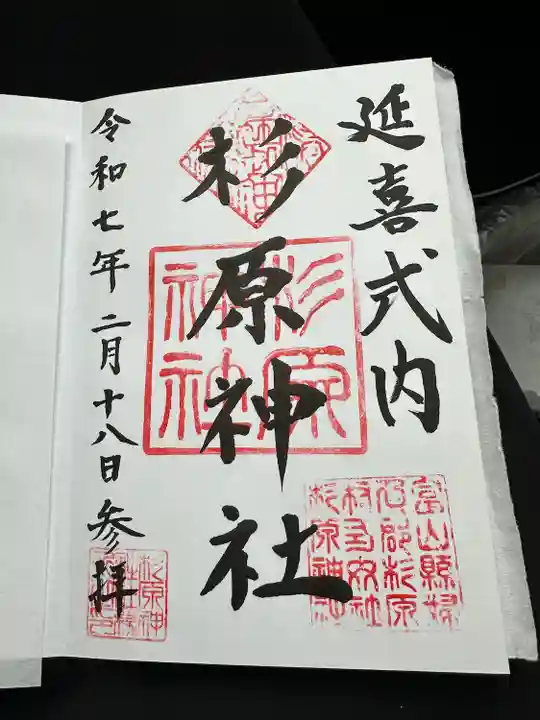 延喜式内
杉原神社
令和七年二月十八日参拝
杉原
神社
富山縣婦
負郡杉原
村
杉原神社
杉原神